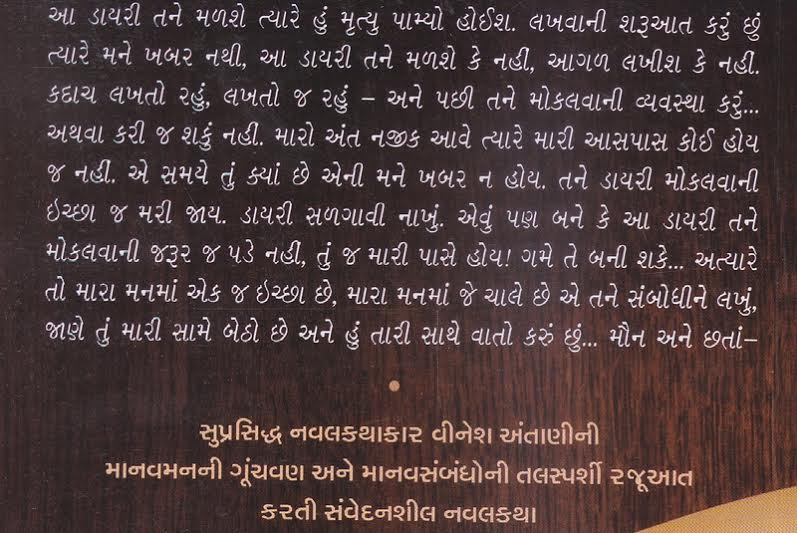 આ ડાયરી તને મળશે ત્યારે હું મૃત્યુ પામ્યો હોઈશ. લખવાની શરૂઆત કરું છું
ત્યારે મને ખબર નથી, આ ડાયરી તને મળશે કે નહીં, આગળ લખીશ કે નહીં.
કદાચ લખતો રહું, લખતો જ રહું – અને પછી તને મોકલવાની વ્યવસ્થા કરું...
અથવા કરી જ શકું નહીં. મારો અંત નજીક આવે ત્યારે મારી આસપાસ કોઈ હોય
જ નહીં. એ સમયે તું ક્યાં છે એની મને ખબર ન હોય. તને ડાયરી મોકલવાની
ઇચ્છા જ મરી જાય. ડાયરી સળગાવી નાખું. એવું પણ બને કે આ ડાયરી તને
મોકલવાની જરૂર જ પડે નહીં, તું જ મારી પાસે હોય! ગમે તે બની શકે... અત્યારે
તો મારા મનમાં એક જ ઇચ્છા છે, મારા મનમાં જે ચાલે છે એ તને સંબોધીને લખું,
જાણે તું મારી સામે બેઠો છે અને હું તારી સાથે વાતો કરું છું... મૌન અને છતાં–
સુપ્રસિદ્ધ નવલકથાકાર વીનેશ અંતાણીની
માનવમનની ગૂંચવણ અને માનવસંબંધોની તલસ્પર્શી રજૂઆત
કરતી સંવેદનશીલ નવલકથા